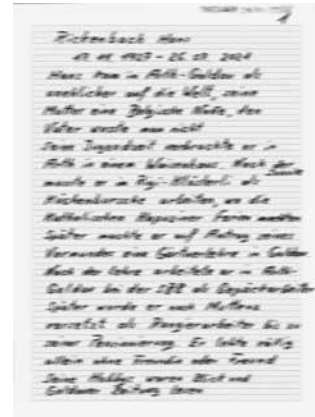 Rickenbach Hans
1927 - 2021
Hans kam in Arth-Goldau als
unehlicher auf die Welt, seine
Mutter eine Belgische Nonne, den
Vater wusste man nicht
Seine Jugendzeit verbrachte er in
Arth in einem Waisenhaus. Nach der
Schule
musste er in Rigi-Klösterli als
Küchenbursche arbeiten, wo die
Katholischen Ferien machten
Später machte er auf Antrag seines
Vormundes eine Gärtnerlehre in Goldau
Nach der Lehre arbeitete er in Arth-
Goldau bei der SBB als Gepäckarbeiter
Später wurde er nach Muttenz
versetzt als Rangierarbeiter bis zu
seiner Pensionierung. Er lebte völlig
allein ohne Freundin oder Freund
Seine Hobbys waren Blick und
Goldauer Zeitung lesen